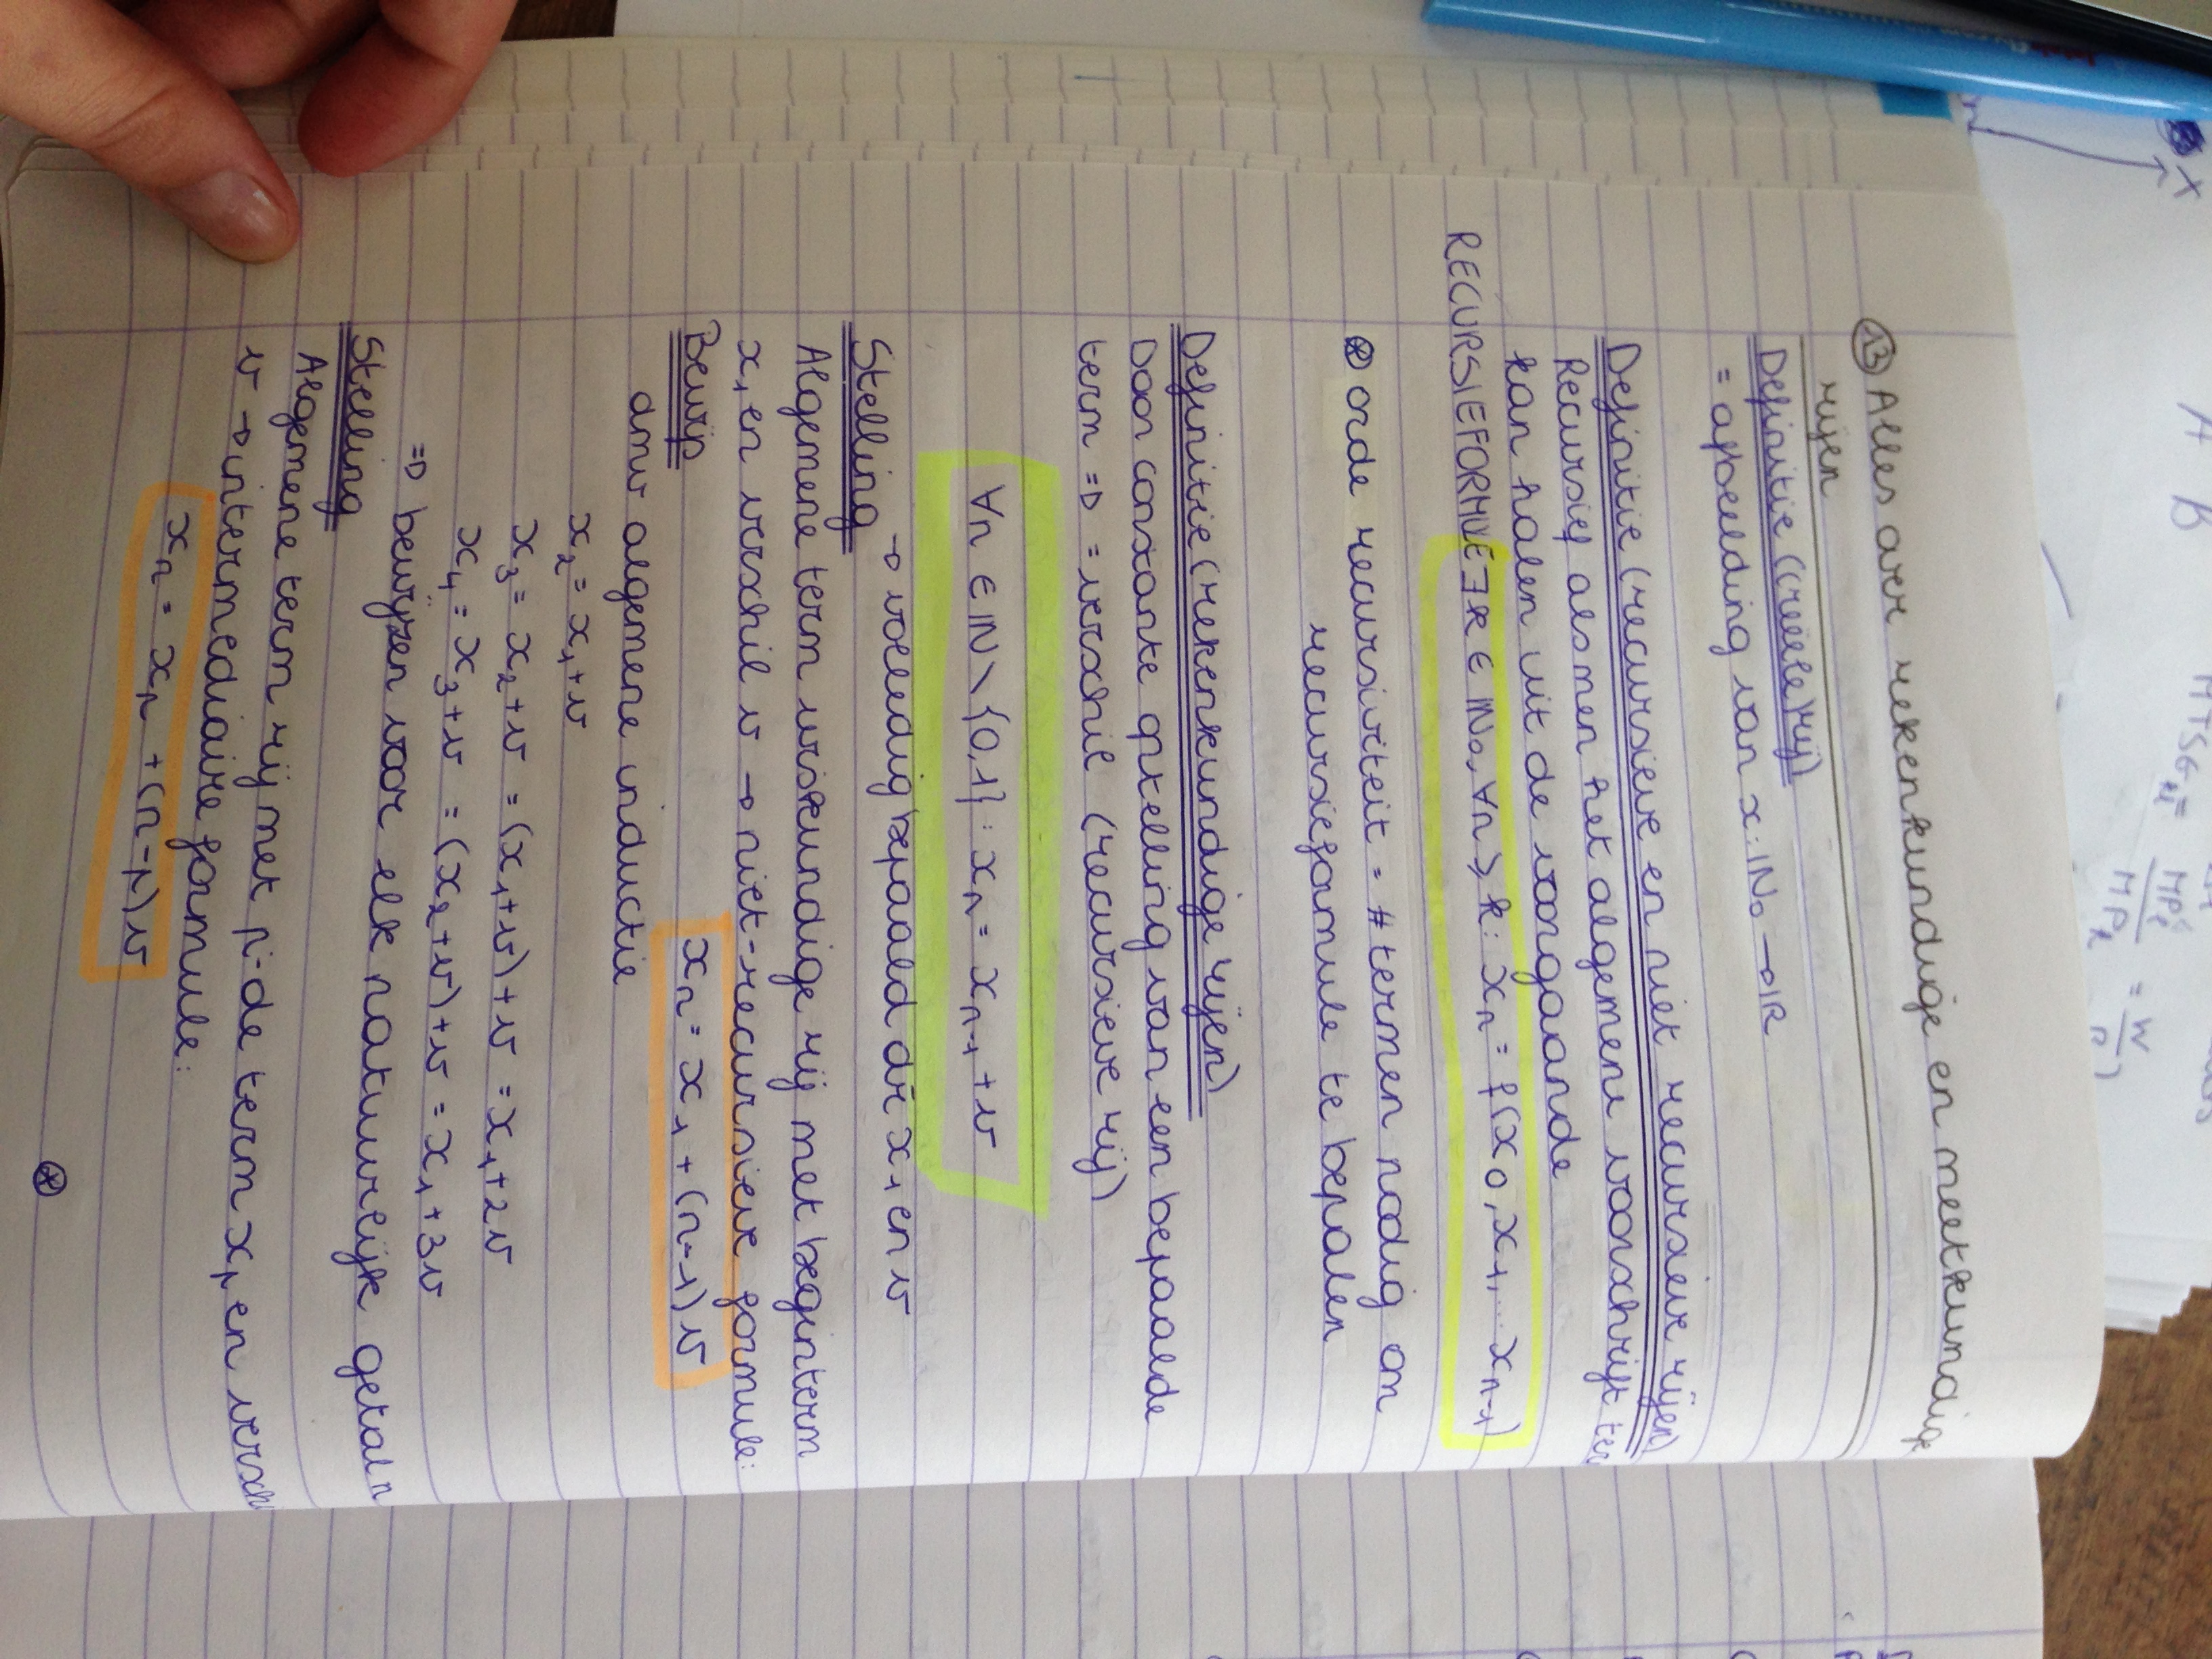 X
A B
MTSG
MPℓ
MPk
= W
⑬ Alles over rekenkundige en meetkundige
rijen
Definitie ((reële) rij)
= afbeelding van x: ℕ₀ → ℝ
Definitie (recursieve en niet recursieve rijen)
Recursief als men het algemene voorschrift ter
kan halen uit de voorgaande
RECURSIEFORMULE ∃k ∈ ℕ₀, ∀n ⩾ k: xₙ = f(x₀, x₁, ... xₙ₋₁)
⊛ orde recursiviteit = # termen nodig om
recursieformule te bepalen
Definitie (rekenkundige rijen)
Door constante optelling van een bepaalde
term => = verschil (recursieve rij)
∀n ∈ ℕ \ {0,1} : xₙ = xₙ₋₁ + v
→ volledig bepaald dr x₁ en v
Stelling
Algemene term wiskundige rij met beginterm
x₁ en verschil v → niet-recursieve formule:
Bewijs xₙ = x₁ + (n-1) v
dmv algemene inductie
x₂ = x₁ + v
x₃ = x₂ + v = (x₁ + v) + v = x₁ + 2v
x₄ = x₃ + v = (x₂ + v) + v = x₁ + 3v
=> bewijzen voor elk natuurlijk getal n
Stelling
Algemene term rij met p-de term xₚ en versch
v → intermediaire formule:
xₙ = xₚ + (n-p) v
⊛